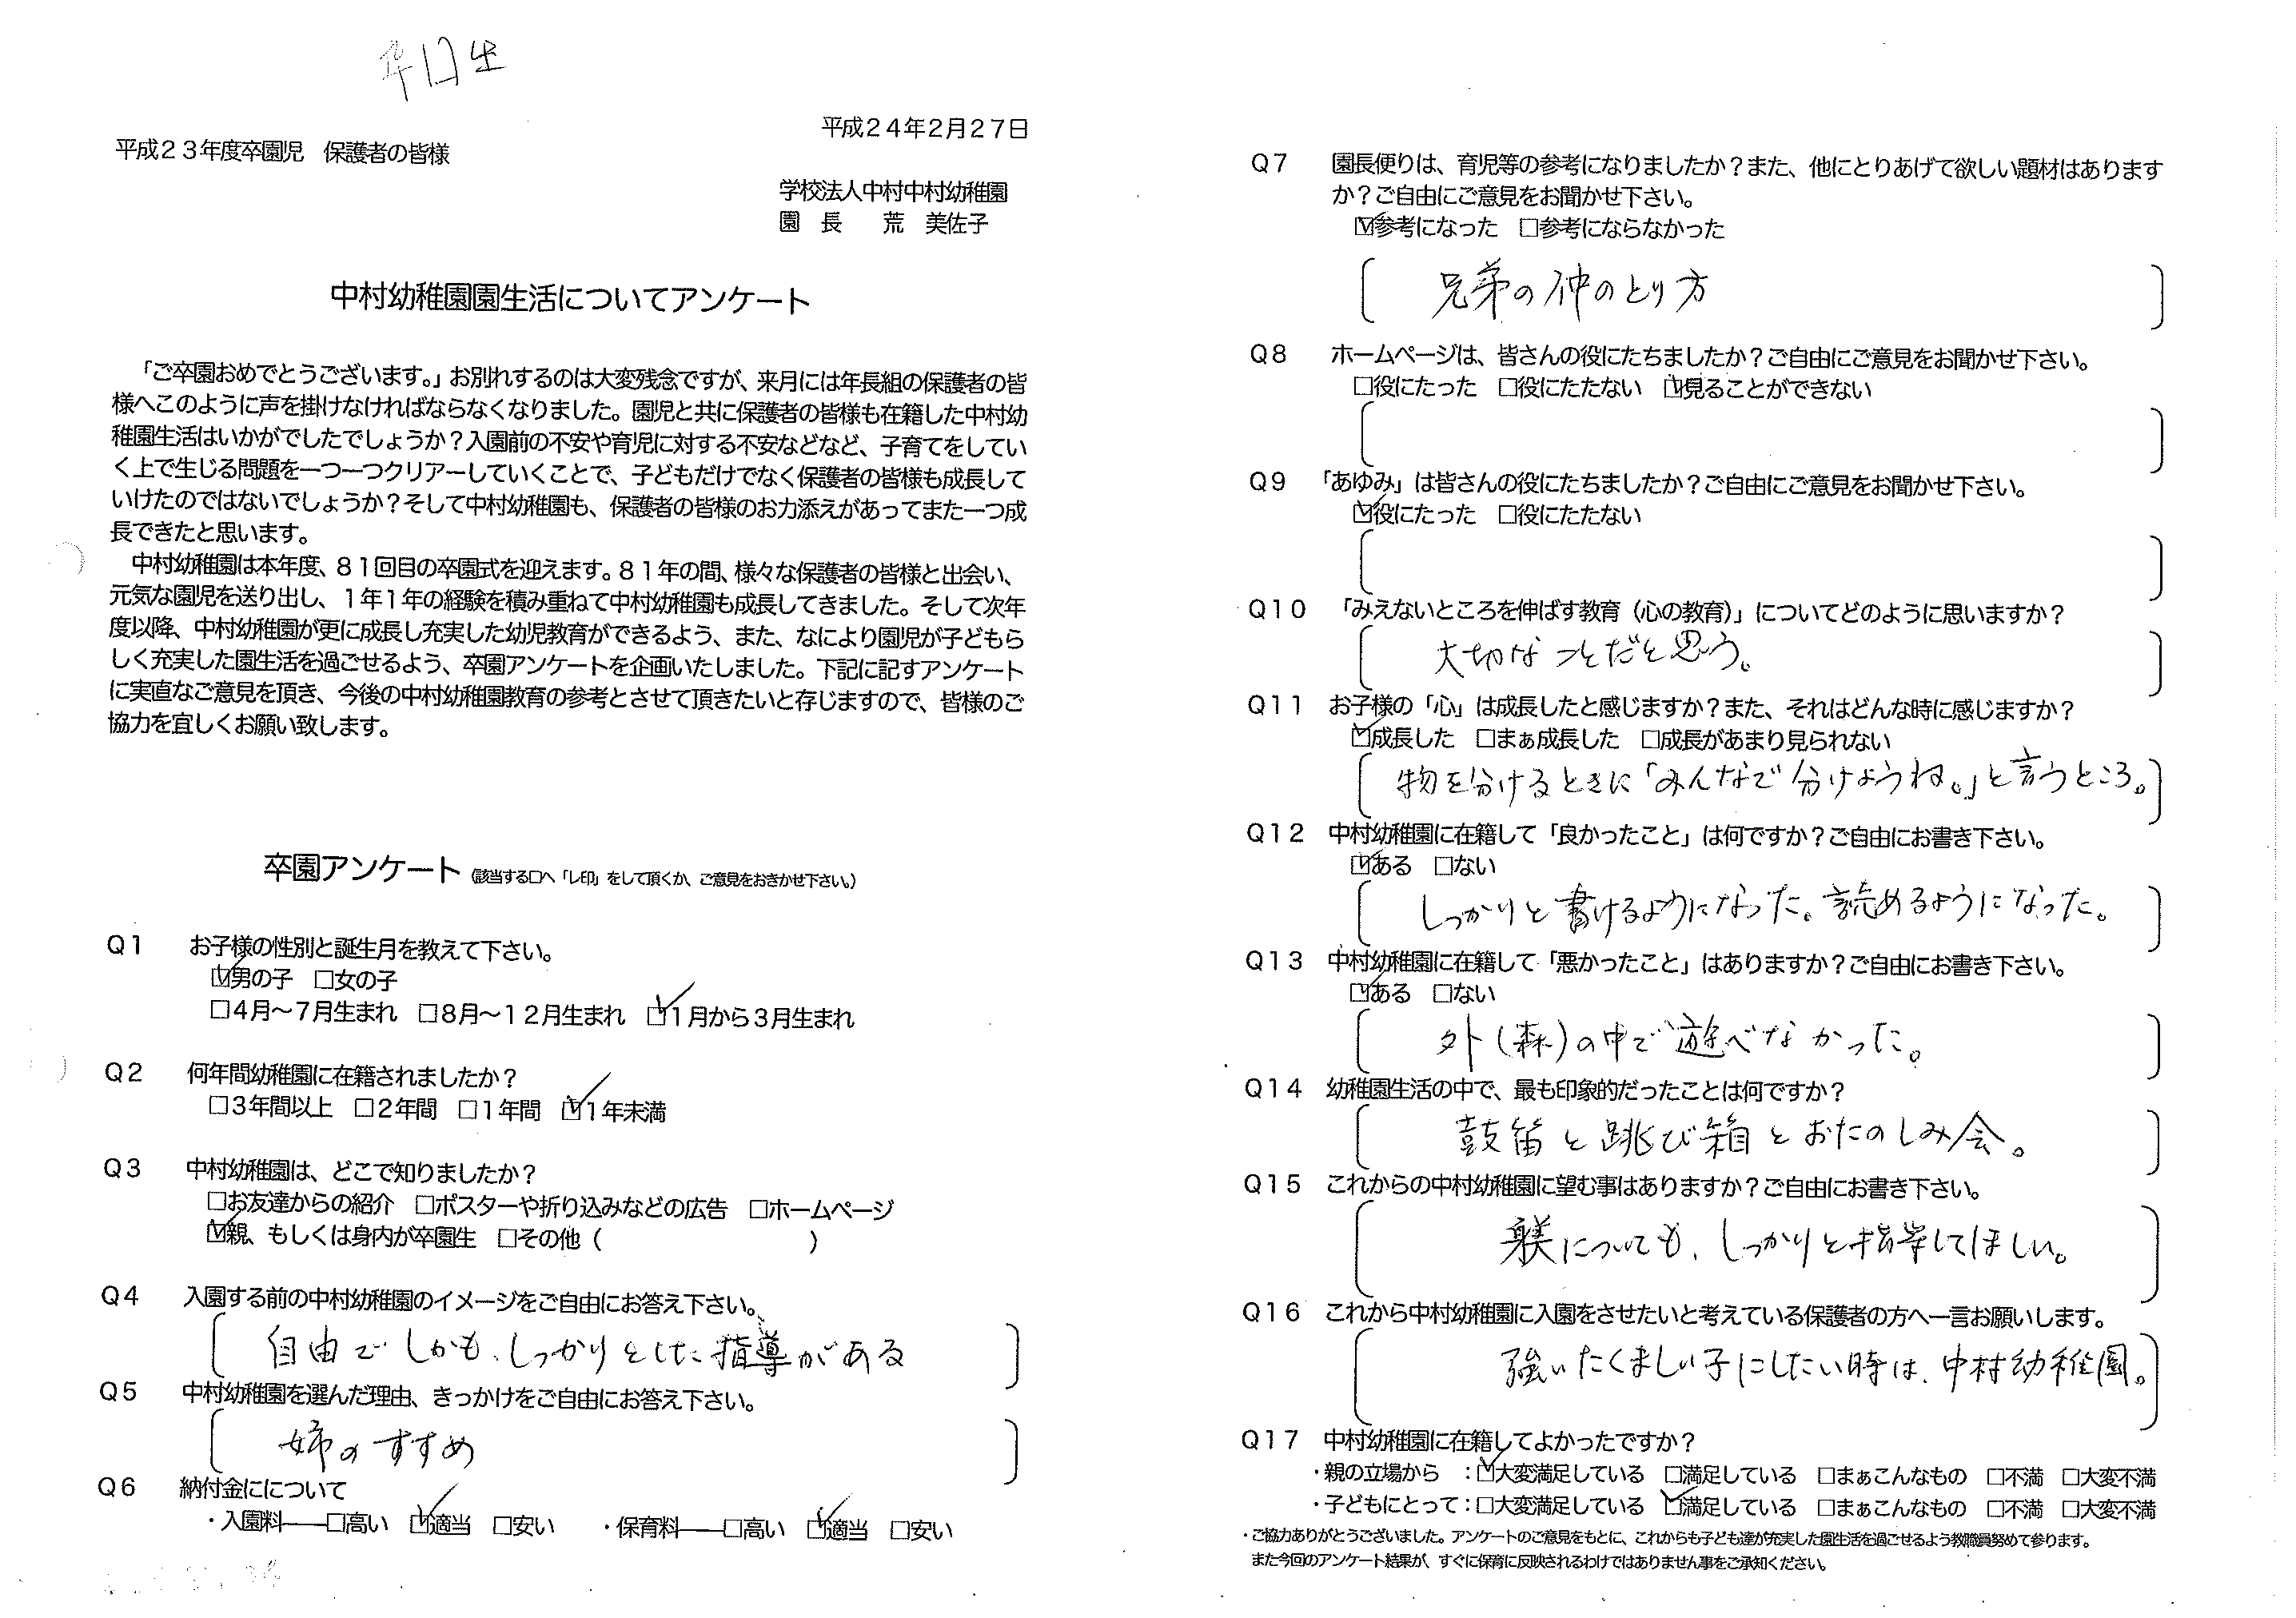 平成24年2月27日
平成23年度卒園児　保護者の皆様
学校法人中村中村幼稚園
園　長　　荒　美佐子
中村幼稚園園生活についてアンケート
「ご卒園おめでとうございます。」お別れするのは大変残念ですが、来月には年長組の保護者の皆
様へこのように声を掛けなければならなくなりました。園児と共に保護者の皆様も在籍した中村幼
稚園生活はいかがでしたでしょうか？入園前の不安や育児に対する不安などなど、子育てをしてい
く上で生じる問題を一つ一つクリアーしていくことで、子どもだけでなく保護者の皆様も成長して
いけたのではないでしょうか？そして中村幼稚園も、保護者の皆様のお力添えがあってまた一つ成
長できたと思います。
中村幼稚園は本年度、81回目の卒園式を迎えます。81年の間、様々な保護者の皆様と出会い、
元気な園児を送り出し、1年1年の経験を積み重ねて中村幼稚園も成長してきました。そして次年
度以降、中村幼稚園が更に成長し充実した幼児教育ができるよう、また、なにより園児が子どもら
しく充実した園生活を過ごせるよう、卒園アンケートを企画いたしました。下記に記すアンケート
に実直なご意見を頂き、今後の中村幼稚園教育の参考とさせて頂きたいと存じますので、皆様のご
協力を宜しくお願い致します。
卒園アンケート（該当する□へ「レ印」をして頂くか、ご意見をおきかせ下さい。）
Q1　お子様の性別と誕生月を教えて下さい。
☑男の子　□女の子
□4月～7月生まれ　□8月～12月生まれ　☑1月から3月生まれ
Q2　何年間幼稚園に在籍されましたか？
□3年間以上　□2年間　□1年間　☑1年未満
Q3　中村幼稚園は、どこで知りましたか？
□お友達からの紹介　□ポスターや折り込みなどの広告　□ホームページ
☑親、もしくは身内が卒園生　□その他（　　　　　　　　）
Q4　入園する前の中村幼稚園のイメージをご自由にお答え下さい。
自由でしかも、しっかりとした指導がある
Q5　中村幼稚園を選んだ理由、きっかけをご自由にお答え下さい。
姉のすすめ
Q6　納付金にについて
・入園料――□高い　☑適当　□安い　・保育料――□高い　☑適当　□安い
Q7　園長便りは、育児等の参考になりましたか？また、他にとりあげて欲しい題材はあります
か？ご自由にご意見をお聞かせ下さい。
☑参考になった　□参考にならなかった
兄弟の仲のとり方
Q8　ホームページは、皆さんの役にたちましたか？ご自由にご意見をお聞かせ下さい。
□役にたった　□役にたたない　☑見ることができない
Q9　「あゆみ」は皆さんの役にたちましたか？ご自由にご意見をお聞かせ下さい。
☑役にたった　□役にたたない
Q10　「みえないところを伸ばす教育（心の教育）」についてどのように思いますか？
大切なことだと思う。
Q11　お子様の「心」は成長したと感じますか？また、それはどんな時に感じますか？
☑成長した　□まぁ成長した　□成長があまり見られない
物を分けるときに「みんなで分けようね。」と言うところ。
Q12　中村幼稚園に在籍して「良かったこと」は何ですか？ご自由にお書き下さい。
☑ある　□ない
しっかりと書けるようになった。読めるようになった。
Q13　中村幼稚園に在籍して「悪かったこと」はありますか？ご自由にお書き下さい。
☑ある　□ない
外（森）の中で遊べなかった。
Q14　幼稚園生活の中で、最も印象的だったことは何ですか？
鼓笛と跳び箱とおたのしみ会。
Q15　これからの中村幼稚園に望む事はありますか？ご自由にお書き下さい。
躾についても、しっかりと指導してほしい。
Q16　これから中村幼稚園に入園をさせたいと考えている保護者の方へ一言お願いします。
強いたくましい子にしたい時は、中村幼稚園。
Q17　中村幼稚園に在籍してよかったですか？
・親の立場から　：☑大変満足している　□満足している　□まぁこんなもの　□不満　□大変不満
・子どもにとって：□大変満足している　☑満足している　□まぁこんなもの　□不満　□大変不満
・ご協力ありがとうございました。アンケートのご意見をもとに、これからも子ども達が充実した園生活を過ごせるよう教職員努めて参ります。
また今回のアンケート結果が、すぐに保育に反映されるわけではありません事をご承知ください。